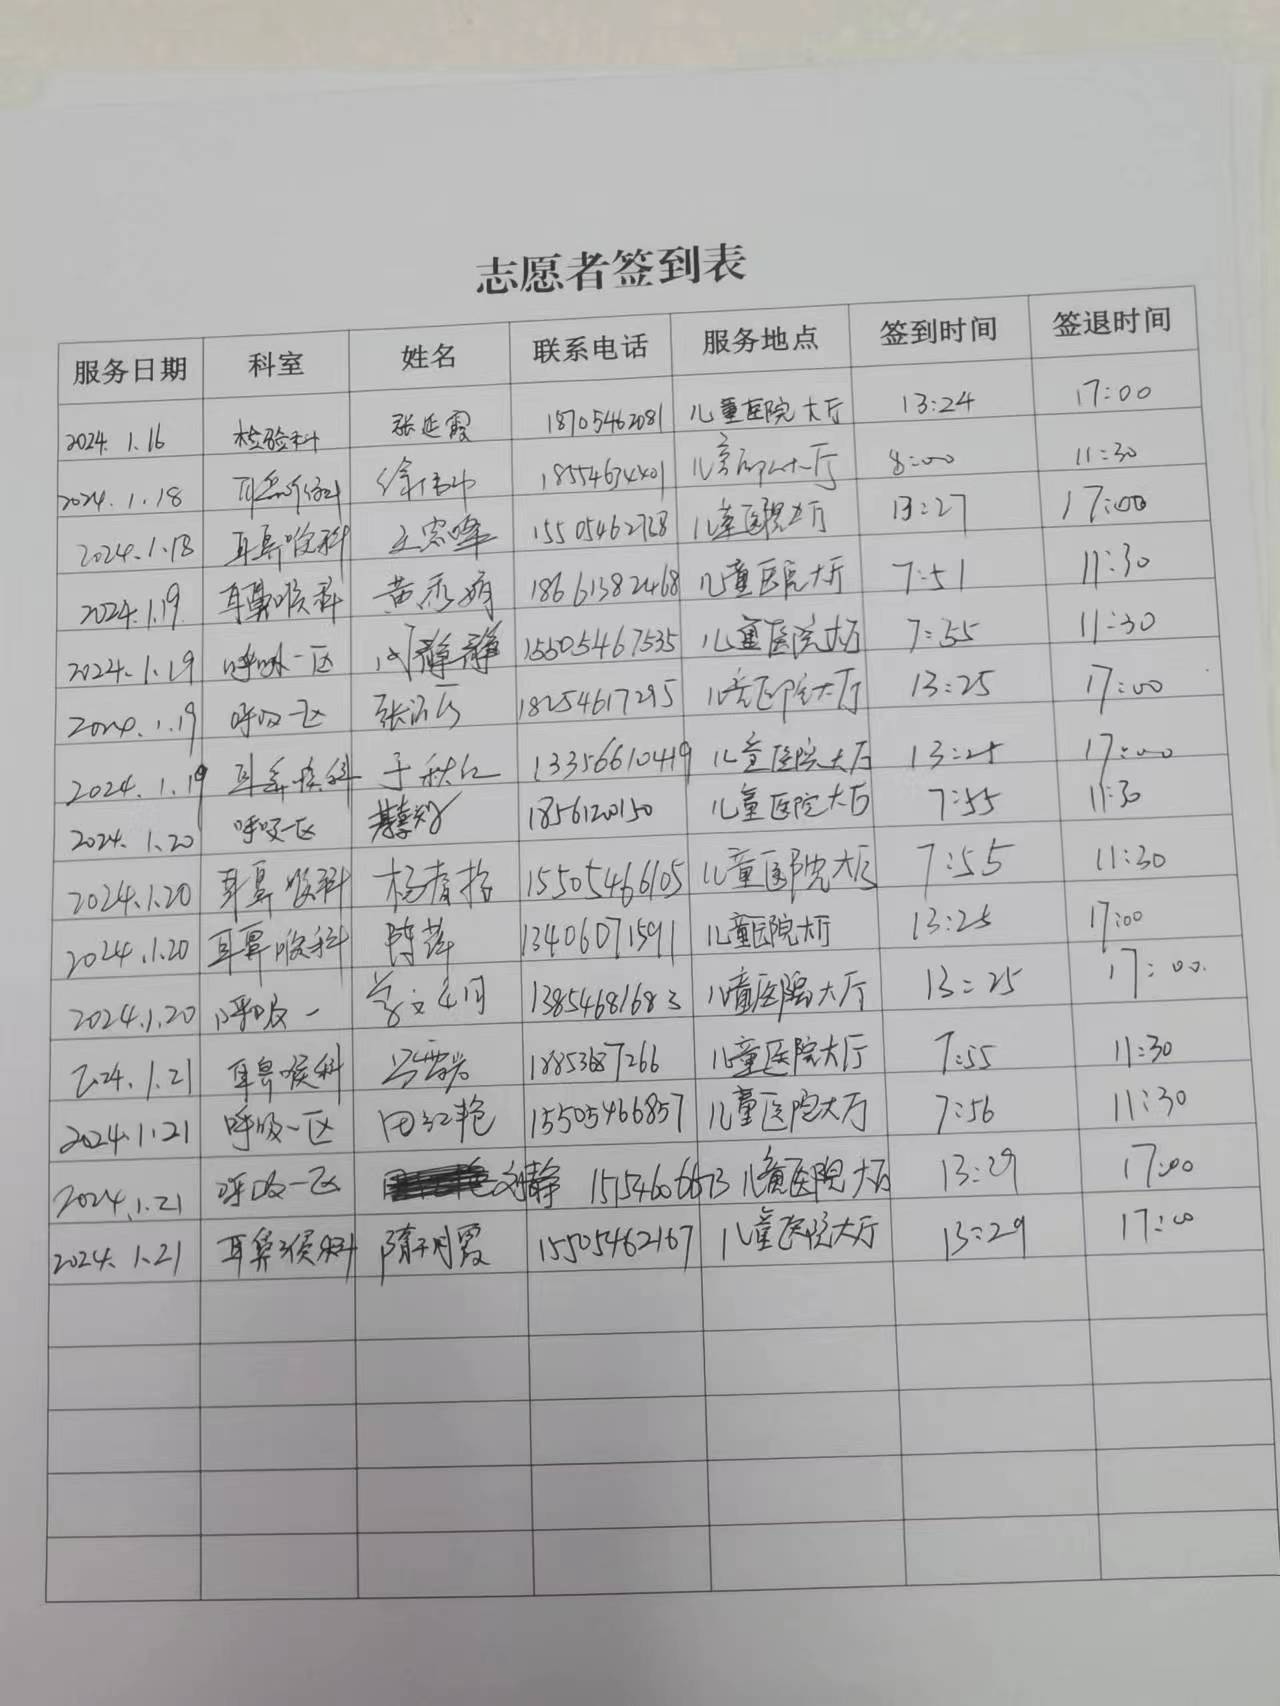 志愿者签到表
服务日期 科室 姓名 联系电话 服务地点 签到时间 签退时间
2024.1.16 检验科 张延霞 18705462081 儿童医院大厅 13:24 17:00
2024.1.18 18554674401 8:00 11:30
2024.1.18 耳鼻喉科 15505462728 儿童医院大厅 13:27 17:00
2024.1.19 耳鼻喉科 黄秀娟 18661382468 儿童医院大厅 7:51 11:30
2024.1.19 呼吸一区 静静 15505467535 儿童医院大厅 7:55 11:30
2024.1.19 呼吸一区 18254617295 儿童医院大厅 13:25 17:00
2024.1.19 耳鼻喉科 于秋红 13356610449 儿童医院大厅 13:25 17:00
2024.1.20 呼吸一区 1856120150 儿童医院大厅 7:55 11:30
2024.1.20 耳鼻喉科 15505466105 儿童医院大厅 7:55 11:30
2024.1.20 耳鼻喉科 陈萍 13406071591 儿童医院大厅 13:25 17:00
2024.1.20 呼吸一 13854681683 儿童医院大厅 13:25 17:00.
2024.1.21 耳鼻喉科 18853687266 儿童医院大厅 7:55 11:30
2024.1.21 呼吸一区 田红艳 15505466857 儿童医院大厅 7:56 11:30
2024.1.21 呼吸一区 刘静 15154606673 儿童医院大厅 13:29 17:00
2024.1.21 耳鼻喉科 隋明霞 15505462167 儿童医院大厅 13:29 17:00